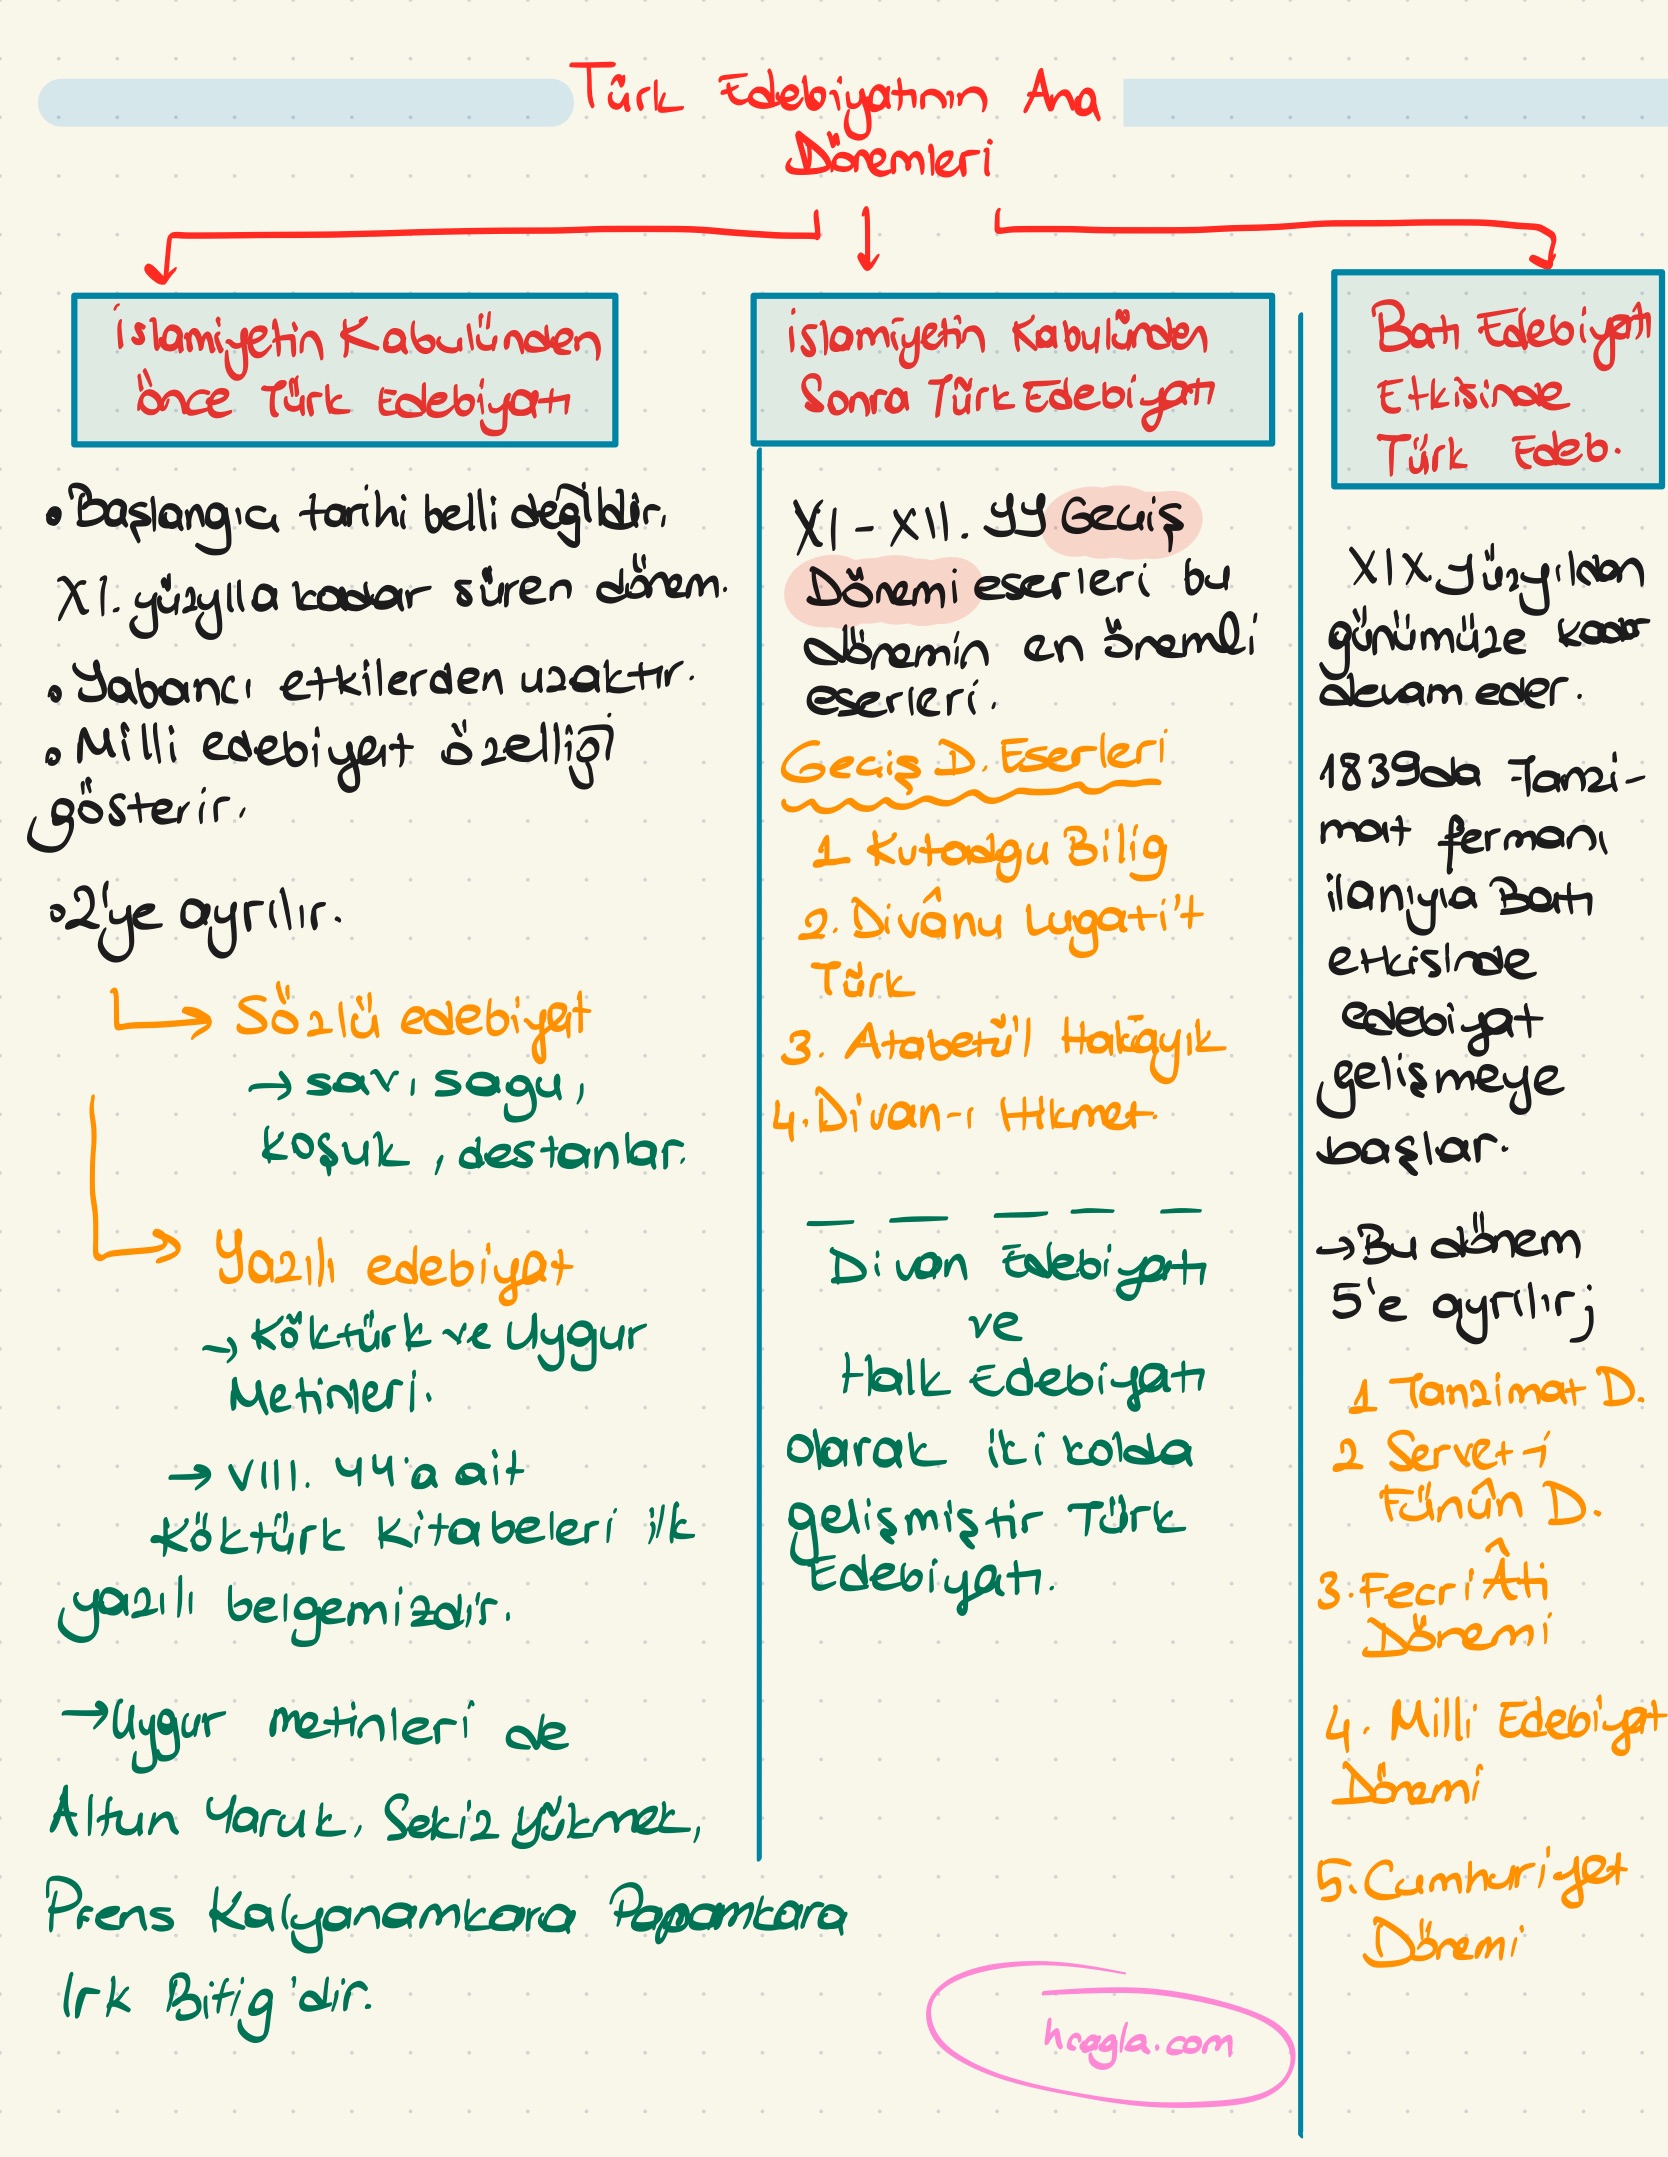 Türk Edebiyatının Ana
Dönemleri
islamiyetin Kabulünden
önce Türk Edebiyatı
• Başlangıcı tarihi belli değildir,
XI. yüzyılla kadar süren dönem.
• Yabancı etkilerden uzaktır.
• Milli edebiyat özelliği
gösterir.
• 2'ye ayrılır.
→ Sözlü edebiyat
→ sav, sagu,
koşuk, destanlar.
→ Yazılı edebiyat
→ Köktürk ve Uygur
Metinleri.
→ VIII. YY'a ait
Köktürk Kitabeleri ilk
yazılı belgemizdir.
→ Uygur metinleri de
Altun Yaruk, Sekiz Yükmek,
Prens Kalyanamkara Papamkara
Irk Bitig'dir.
islamiyetin Kabulünden
Sonra Türk Edebiyatı
XI - XII. YY Geçiş
Dönemi eserleri bu
dönemin en önemli
eserleri.
Geçiş D. Eserleri
1 Kutadgu Bilig
2. Divânu Lugati't
Türk
3. Atabetü'l Hakayık
4. Divan-ı Hikmet.
Divan Edebiyatı
ve
Halk Edebiyatı
olarak iki kolda
gelişmiştir Türk
Edebiyatı.
Batı Edebiyatı
Etkisinde
Türk Edeb.
XIX yüzyıldan
günümüze kadar
devam eder.
1839da Tanzi-
mat fermanı
ilanıyla Batı
etkisinde
edebiyat
gelişmeye
başlar.
→ Bu dönem
5'e ayrılır;
1 Tanzimat D.
2 Servet-i
Fünûn D.
3. Fecri Âti
Dönemi
4. Milli Edebiyat
Dönemi
5. Cumhuriyet
Dönemi
hcagla.com